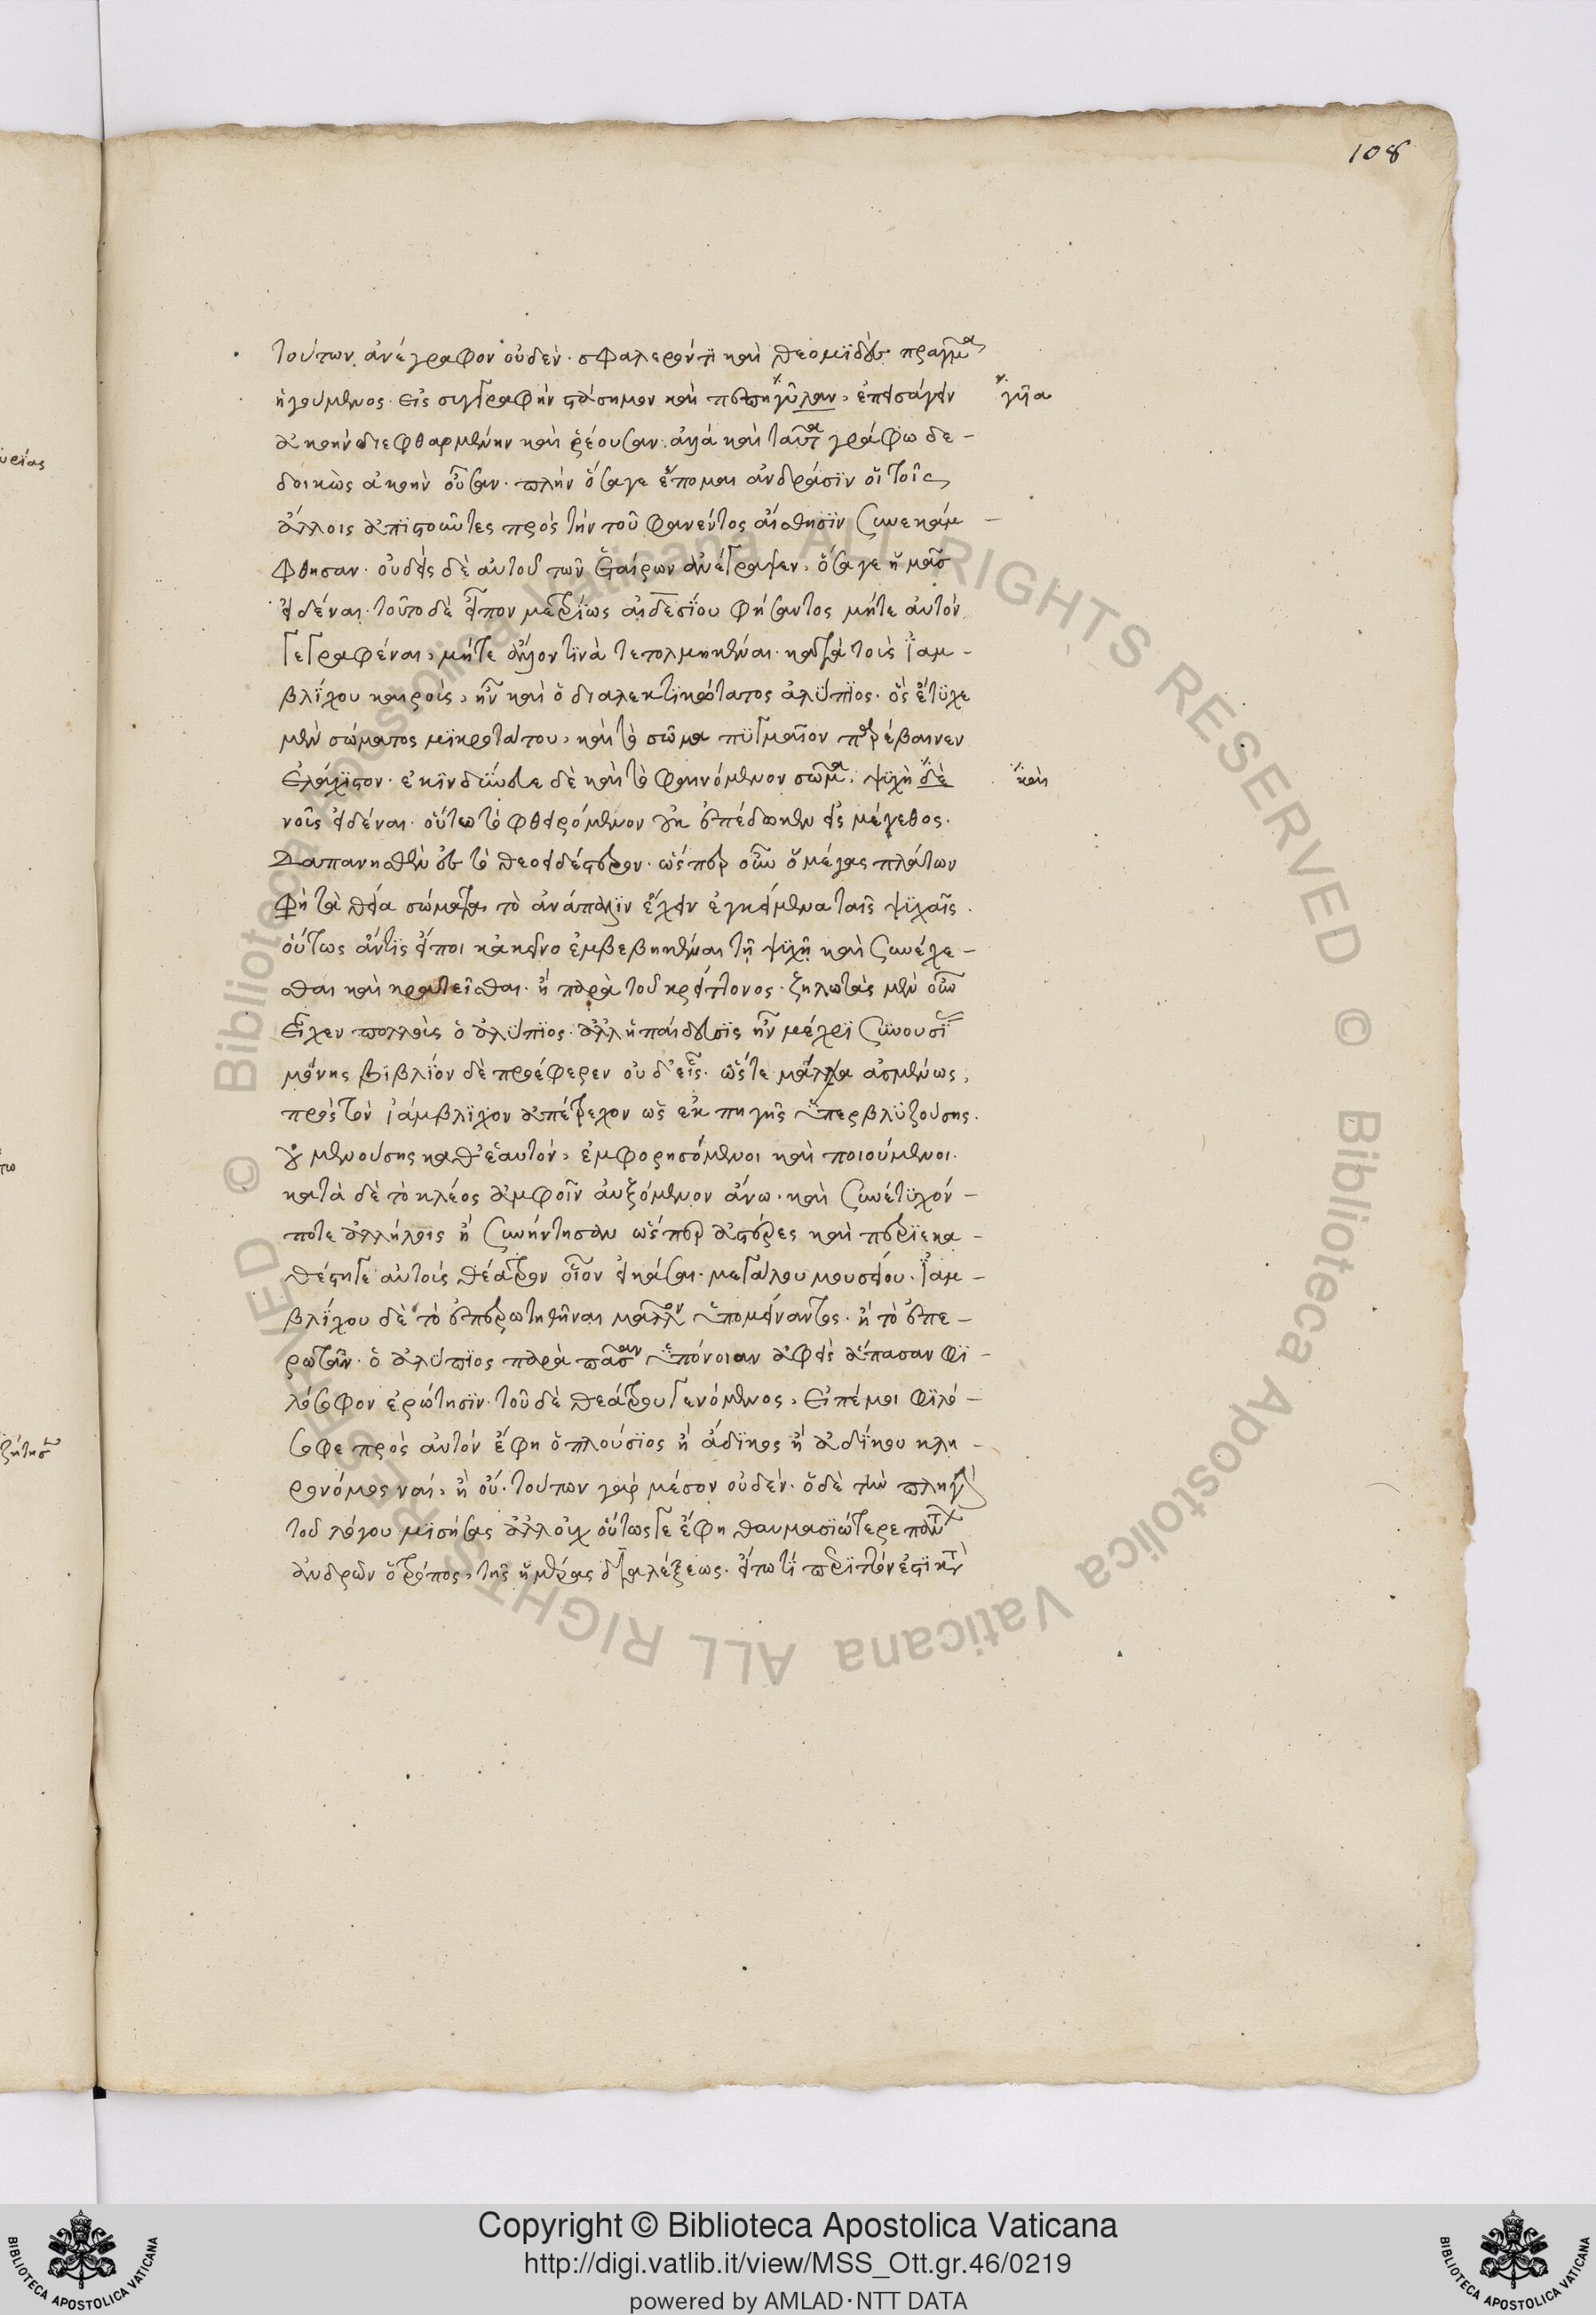 108
τούτων ἀνέγραφον οὐδέν· σφαλερόν τϊ καὶ θεομϊσὲς πραγμα
ἡγούμενος· εἰς συγγραφὴν στάσημον καὶ πεπηγῦλαν, ἐπεισάγειν
ἀκοὴν διεφθαρμένην καὶ ῥέουσαν· ἀλλὰ καὶ ταῦτα γράφω δε-
δοικὼς ἀκοὴν οὖσαν· πλὴν ὅσαγε ἕπομαι ἀνδράσϊν οἳ τοῖς
ἄλλοις ἀπϊστοῦντες πρὸς τὴν τοῦ φανέντος αἴσθησϊν συνεκάμ-
φθησαν· οὐδεὶς δὲ αὐτοῦ τῶν ἑταίρων ἀνέγραψεν, ὅσαγε ἡμᾶς
εἰδέναι· τοῦτο δὲ εἶπον μετρϊως αἰδεσΐου φήσαντος μήτε αὐτὸν
γεγραφέναι, μήτε ἄλλον τϊνὰ τετολμηκέναι· κατὰ τοὺς ἰαμ-
βλΐχου καιροὺς, ἦν καὶ ὁ διαλεκτϊκώτατος ἀλύπϊος· ὃς ἔτϋχε
μὲν σώματος μϊκροτάτου, καὶ τὸ σῶμα πϋγμαῖον παρέβαινεν
ἐλάχϊστον· ἐκϊνδΰνευε δὲ καὶ τὸ φαινόμενον σῶμα, ψϋχὴ δὲ
νοῦς εἰδέναι· οὕτω τὸ φθειρόμενον οὐκ ἐπέδωκεν εἰς μέγεθος·
δαπανηθὲν εἰς τὸ θεοειδέστερον· ὥσπερ οὖν ὁ μέγας πλάτων
φη τὰ θεῖα σώματα, τὸ ἀνάπαλϊν ἔχειν ἐγκείμενα ταῖς ψϋχαῖς·
οὕτως ἄν τϊς εἴποι κἀκεῖνο ἐμβεβηκέναι τῇ ψϋχῇ καὶ συνέχε-
σθαι καὶ κρατεῖσθαι· ἢ παρὰ τοῦ κρείττονος· ζηλωτὰς μὲν οὖν
εἶχεν πολλοὺς ὁ ἀλύπϊος· ἀλλ' ἡ παίδευσϊς ἦν μέχρϊ συνουσΐ
μόνης βϊβλΐον δὲ προέφερεν οὐδεῖς· ὥστε μάλλα ἀσμένως,
πρὸς τὸν ἰάμβλϊχον ἀπέτρεχον ὡς ἐκ πηγῆς ὑπερβλϋζούσης·
οὐ μενούσης καθ' ἑαυτὸν, ἐμφορησόμενοι καὶ ποιούμενοι·
κατὰ δὲ τὸ κλέος ἀμφοῖν αὐξόμενον ἄνω· καὶ συνέτϋχόν-
ποτε ἀλλήλοις ἢ συνήντησαν ὥσπερ ἀστέρες καὶ περϊεκα-
θέστητε αὐτοὺς θέατρον οἷον εἰκάσαι· μεγάλου μουσείου· ἰαμ-
βλΐχου δὲ τὸ ἐπερωτηθῆναι μᾶλλον ὑπομείναντος· ἢ τὸ ἐπε-
ρωτᾶν· ὁ ἀλύπϊος παρὰ πᾶσαν ὑπόνοιαν ἀφεὶς ἅπασαν φϊ-
λόσοφον ἐρώτησϊν· τοῦ δὲ θεάτρου γενόμενος, εἰπέ μοι φϊλό-
σοφε πρὸς αὐτὸν ἔφη ὁ πλούσϊος ἢ ἄδϊκος ἢ ἀδΐκου κλη-
ρονόμος ναί, ἢ οὔ· τούτων γὰρ μέσον οὐδέν· ὁ δὲ τὴν πληγὴν
τοῦ λόγου μϊσήσας ἀλλ' οὐχ οὕτωςγε ἔφη θαυμασϊώτερε πάντων
ἀνδρῶν ὁ τρόπος, τῆς ἡμετέρας δϊαλέξεως· εἴτω τί περϊττόν ἐστϊ κατὰ
γῆϊα
καὶ
υρίας